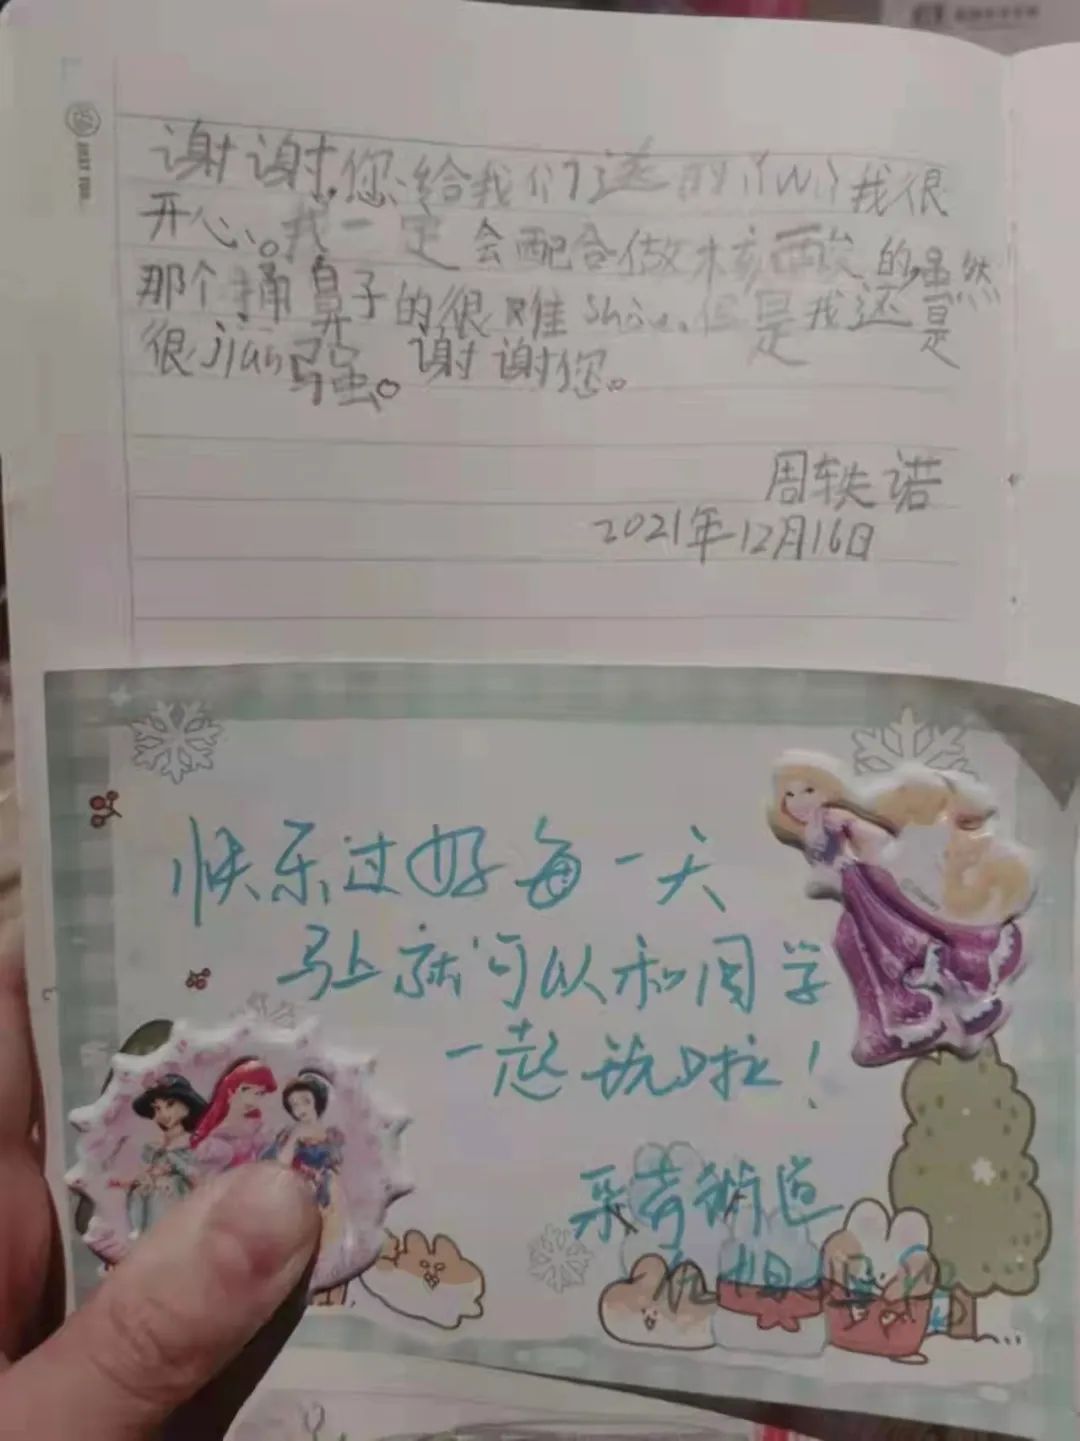 谢谢您给我们送的礼wu，我很
开心。我一定会配合做核酸的，虽然
那个捅鼻子的很难shou，但是我还是
很jian强。谢谢您。
周轶诺
2021年12月16日
快乐过好每一天
马上就可以和同学
一起玩啦！
采荷街道